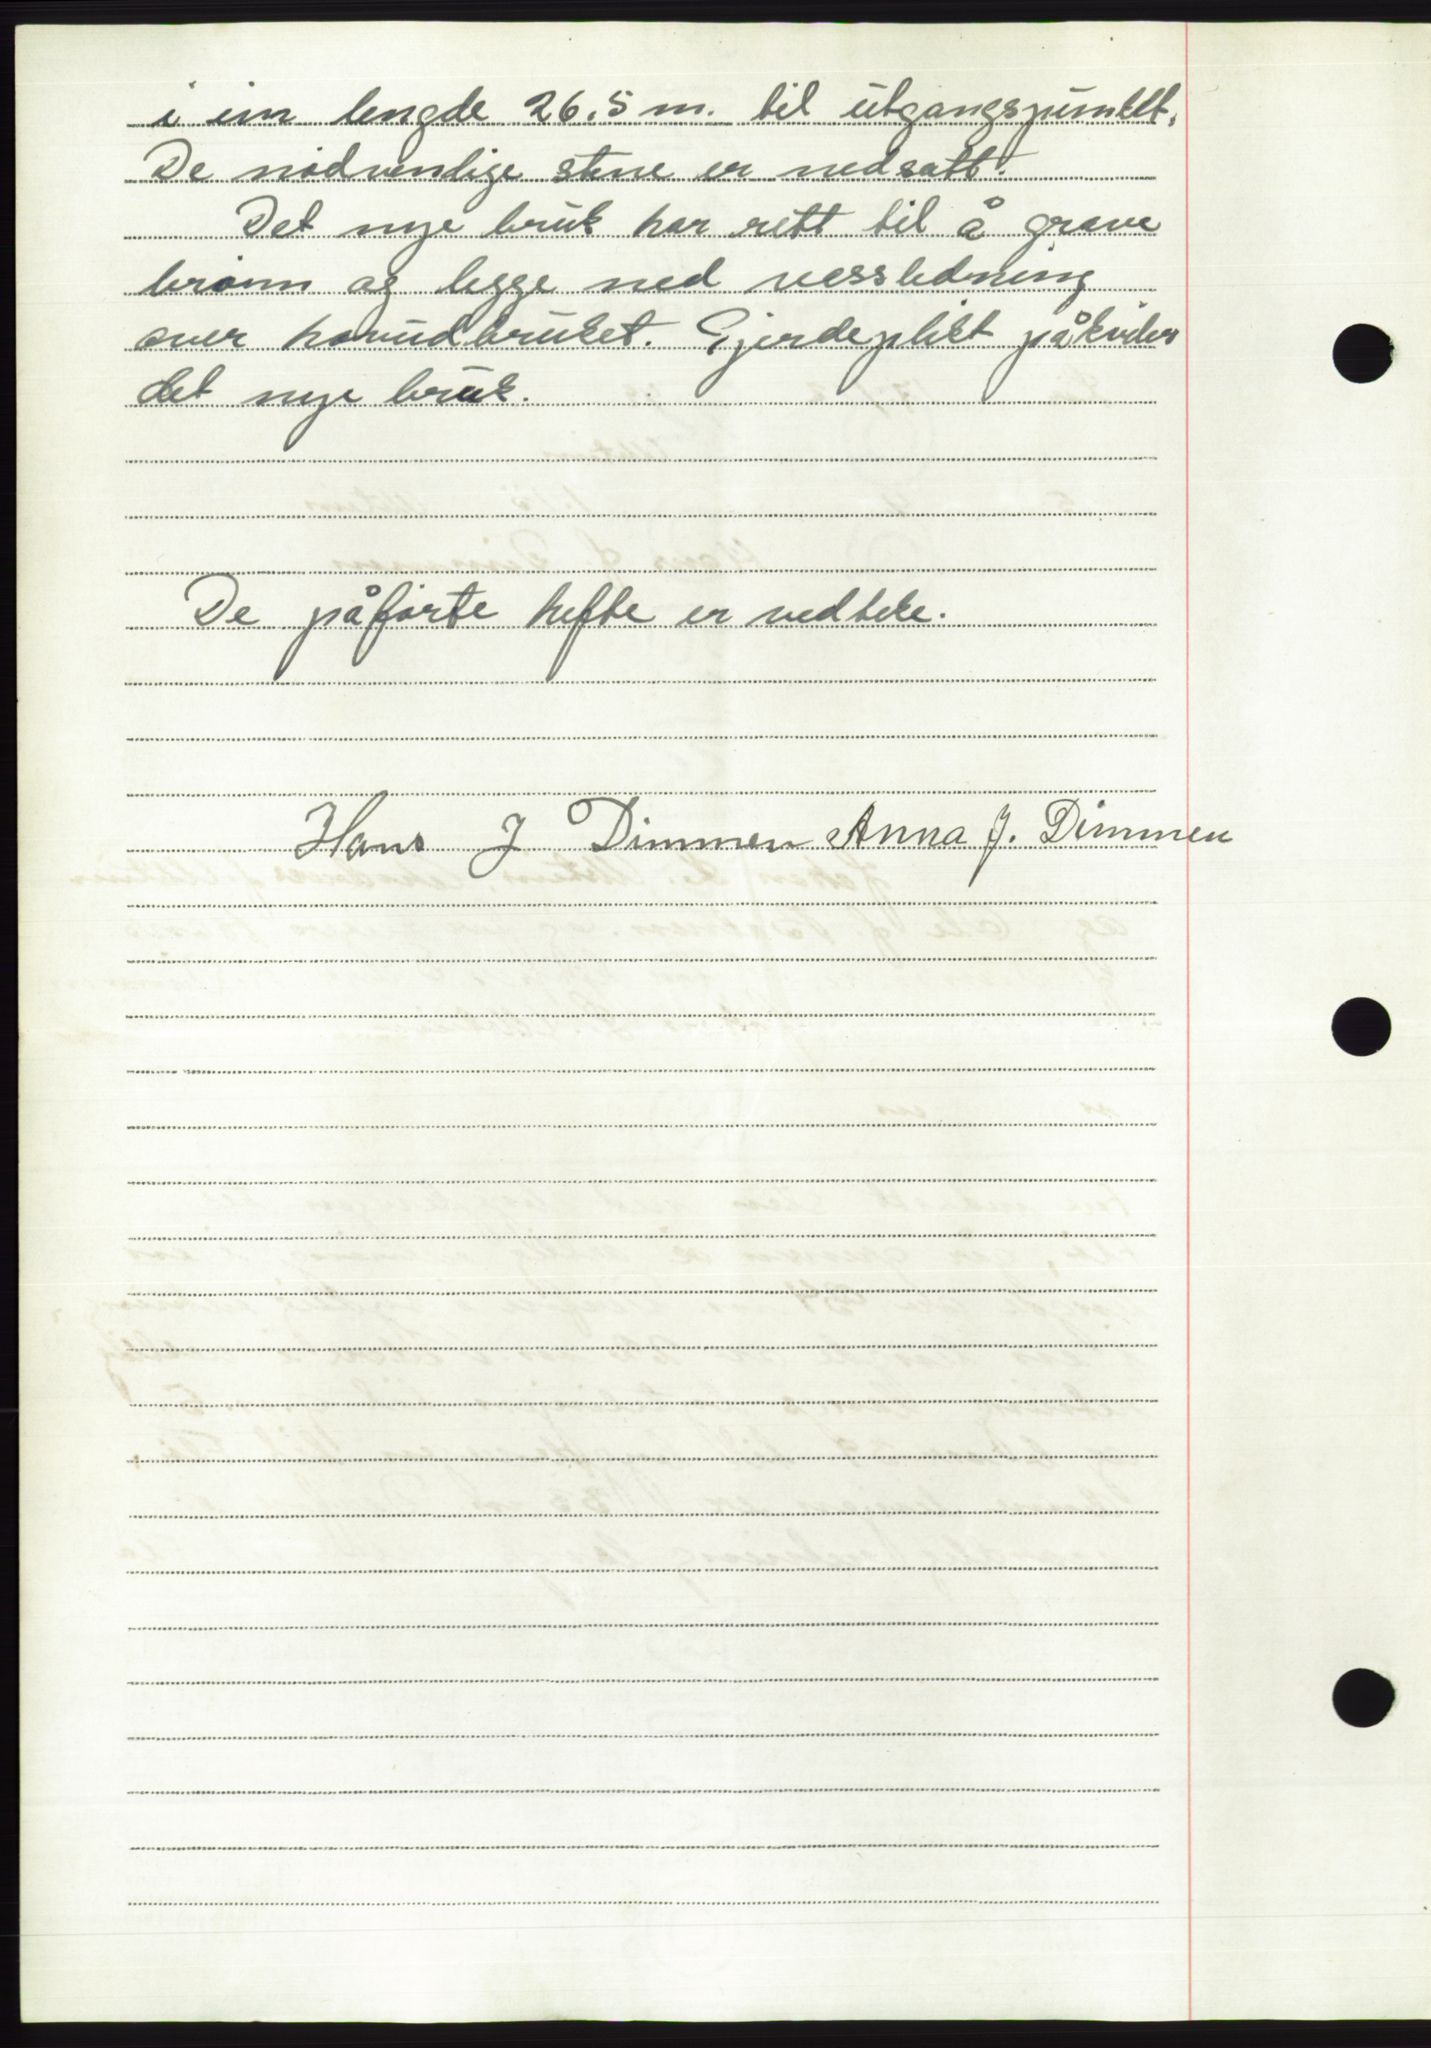 i ein lengde 26.5 m. til utgangspunktet.
De nødvendige stene er nedsatt.
Det nye bruk har rett til å grave
brønn og legge ned vassledning
over hovudbruket. Gjerdeplikt påkviler
det nye bruk.
De påførte hefte er vedteke.
Hans J Dimmen Anna J. Dimmen